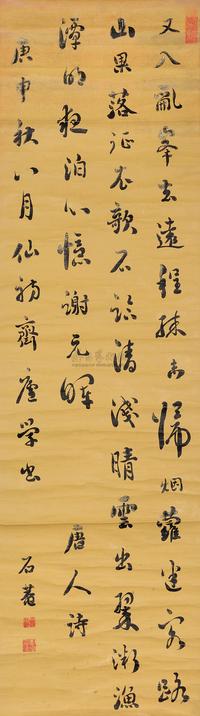 又入亂峯去遠程殊未歸烟蘿迷客路
山果落征衣歌石臨清淺晴雲出翠微漁
潭明夜泊心憶謝元暉
唐人詩
庚申秋八月仙舫齋盧學書
石菴